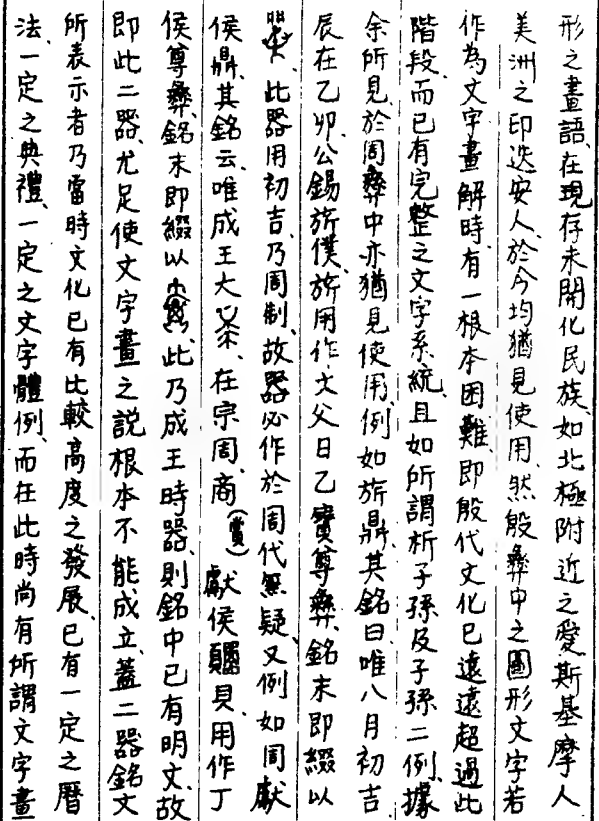 形之畫語、在現存未開化民族、如北極附近之愛斯基摩人
美洲之印迭安人、於今均猶見使用、然殷彝中之圖形文字若
作為文字畫解時、有一根本困難、即殷代文化已遠遠超過此
階段、而已有完整之文字系統、且如所謂析子孫及子孫二例、據
余所見、於周彝中亦猶見使用、例如旂鼎、其銘曰、唯八月初吉
辰在乙卯、公錫旂僕、旂用作文父日乙寶尊彝、銘末即綴以
此器用初吉、乃周制、故器必作於周代無疑、又例如周獻
侯鼎、其銘云、唯成王大𠦪、在宗周、商(賞)獻侯䫉貝、用作丁
侯尊彝、銘末即綴以 此乃成王時器、則銘中已有明文、故
即此二器、尤足使文字畫之說根本不能成立、蓋二器銘文
所表示者乃當時文化已有比較高度之發展、已有一定之曆
法、一定之典禮、一定之文字體例、而在此時尚有所謂文字畫